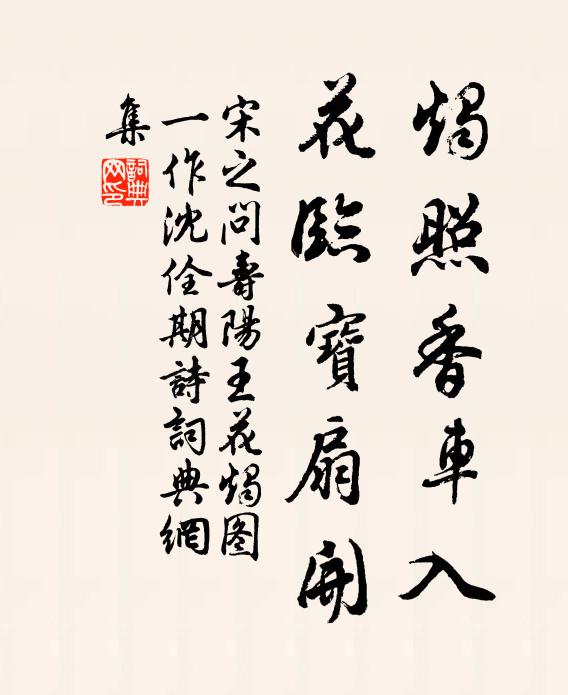 燭照香車入
花臨寶扇開
宋之問壽陽王花燭图
一作沈佺期詩詞典網
集
詞典
网印